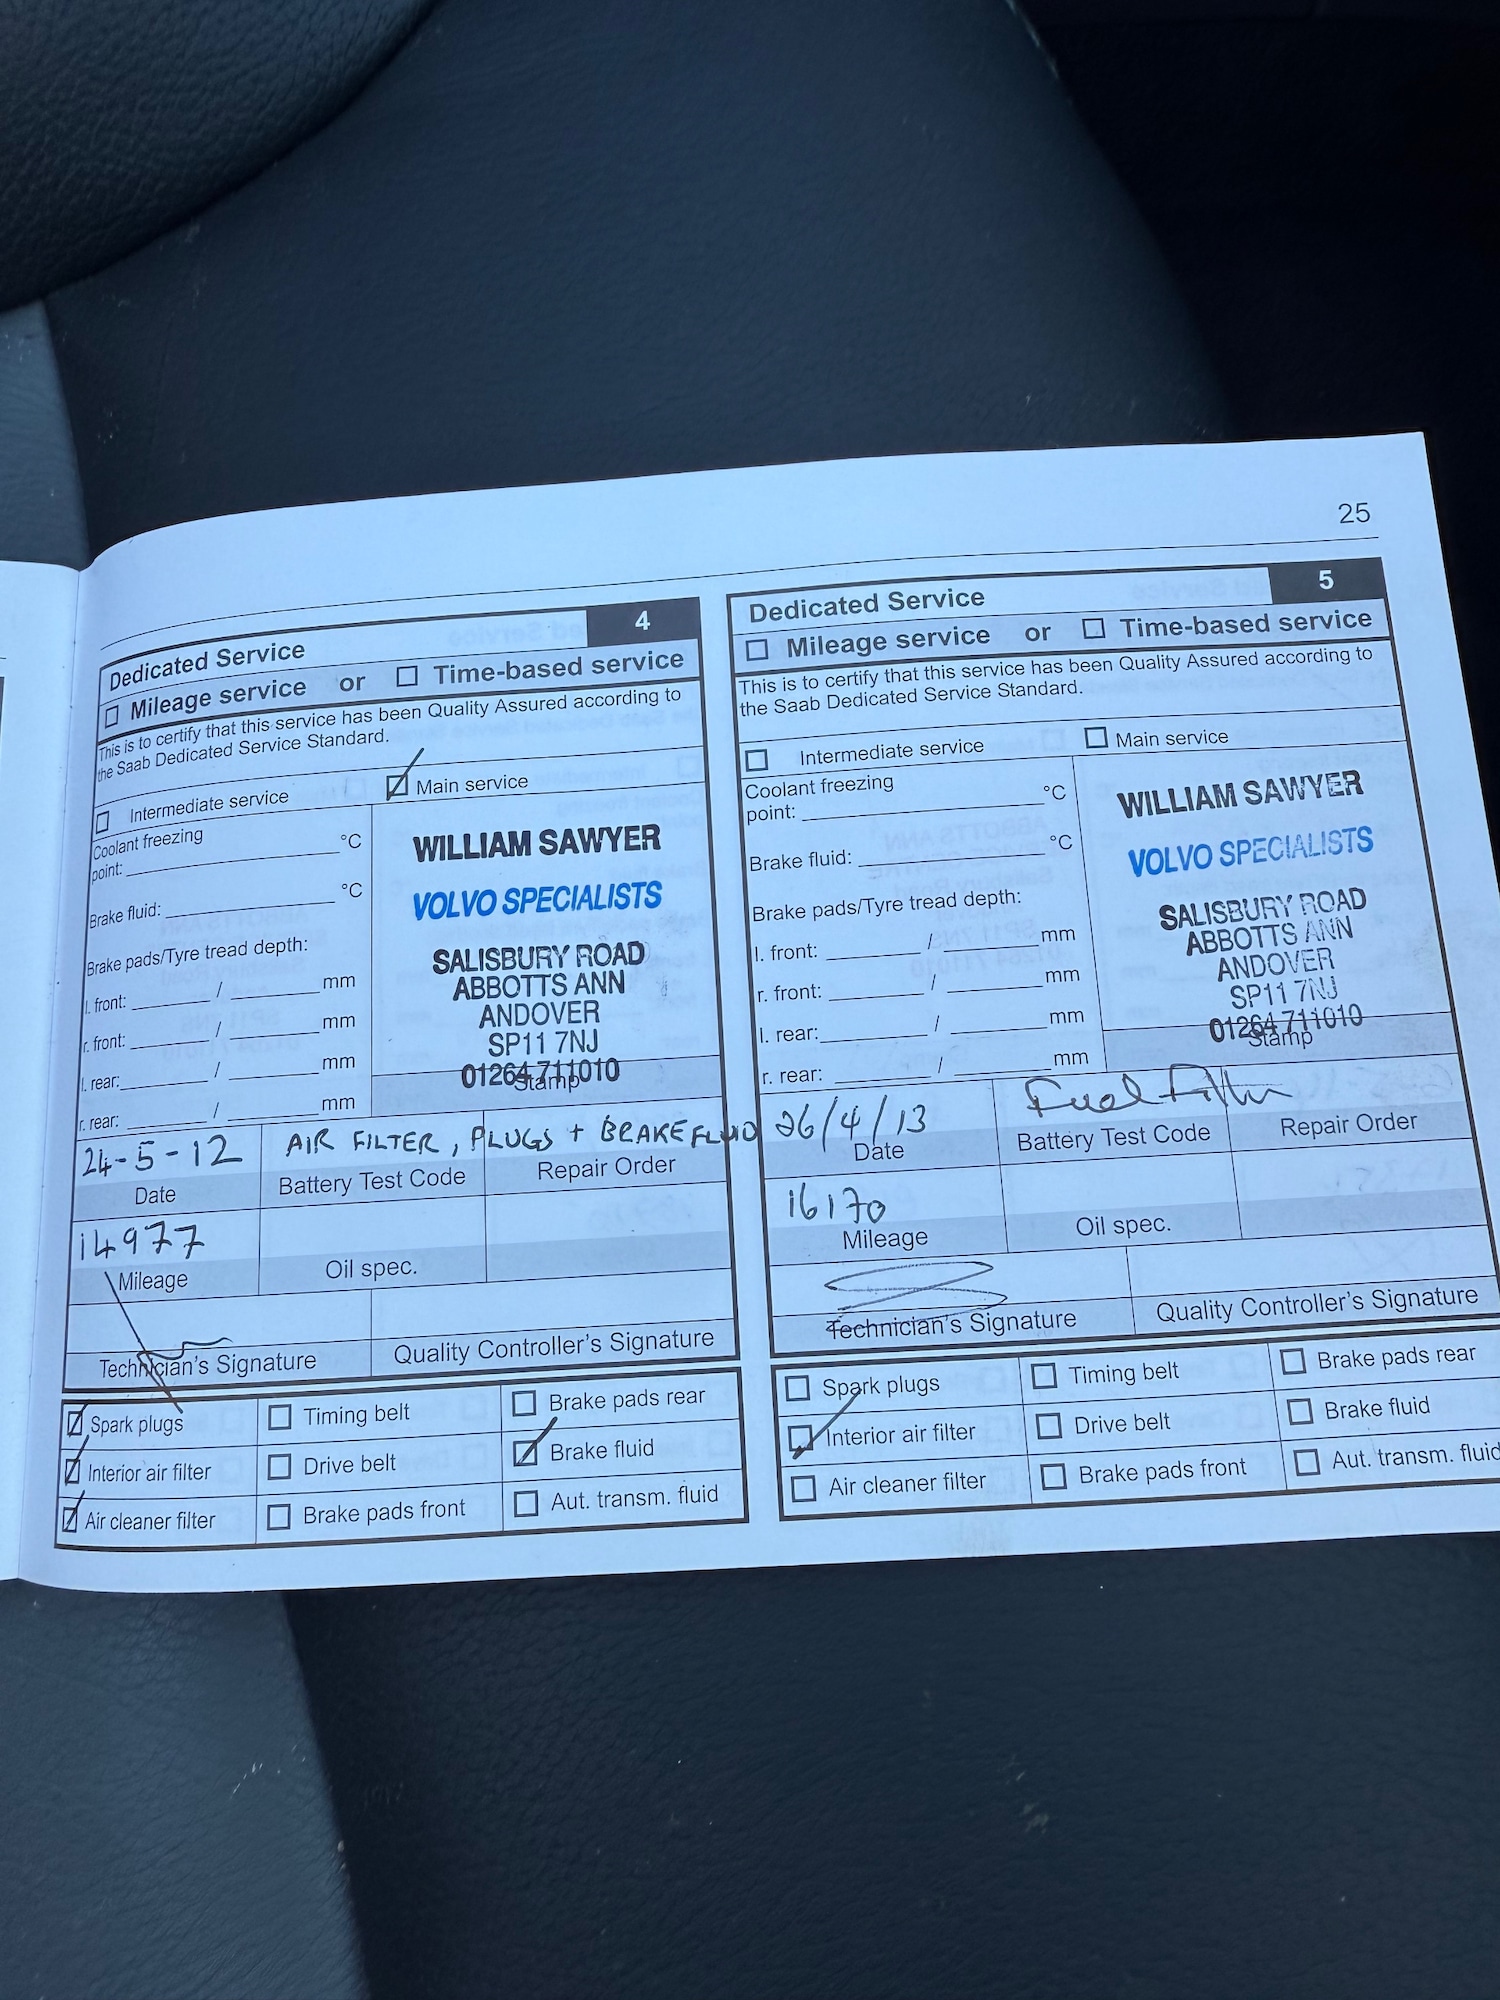 25
Dedicated Service 4
Mileage service or Time-based service
This is to certify that this service has been Quality Assured according to
the Saab Dedicated Service Standard.
Intermediate service Main service
Coolant freezing
point: °C
Brake fluid: °C
Brake pads/Tyre tread depth:
l. front: / mm
r. front: / mm
l. rear: / mm
r. rear: / mm
WILLIAM SAWYER
VOLVO SPECIALISTS
SALISBURY ROAD
ABBOTTS ANN
ANDOVER
SP11 7NJ
01264 711010
Stamp
24-5-12 AIR FILTER, PLUGS + BRAKE FLUID
Date Battery Test Code Repair Order
14977
Mileage Oil spec.
Technician's Signature Quality Controller's Signature
Spark plugs Timing belt Brake pads rear
Interior air filter Drive belt Brake fluid
Air cleaner filter Brake pads front Aut. transm. fluid
Dedicated Service 5
Mileage service or Time-based service
This is to certify that this service has been Quality Assured according to
the Saab Dedicated Service Standard.
Intermediate service Main service
Coolant freezing
point: °C
Brake fluid: °C
Brake pads/Tyre tread depth:
l. front: / mm
r. front: / mm
l. rear: / mm
r. rear: / mm
WILLIAM SAWYER
VOLVO SPECIALISTS
SALISBURY ROAD
ABBOTTS ANN
ANDOVER
SP11 7NJ
01264 711010
Stamp
26/4/13 Fuel Filter
Date Battery Test Code Repair Order
16170
Mileage Oil spec.
Technician's Signature Quality Controller's Signature
Spark plugs Timing belt Brake pads rear
Interior air filter Drive belt Brake fluid
Air cleaner filter Brake pads front Aut. transm. fluid